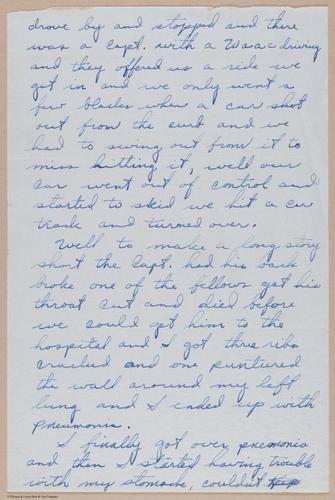 drove by and stopped and there
was a Capt. with a Waac driving
and they offered us a ride we
got in and we only went a
few blocks when a car shot
out from the curb and we
had to swing out from it to
miss hitting it, well our
car went out of control and
started to skid we hit a car
track and turned over.
Well to make a long story
short the Capt. had his back
broke one of the fellows got his
throat cut and died before
we could get him to the
hospital and I got three ribs
crushed and one puntiered
the wall around my left
lung and I ended up with
pneumonia.
I finally got over pnemonia
and then I started having trouble
with my stomach, couldnt